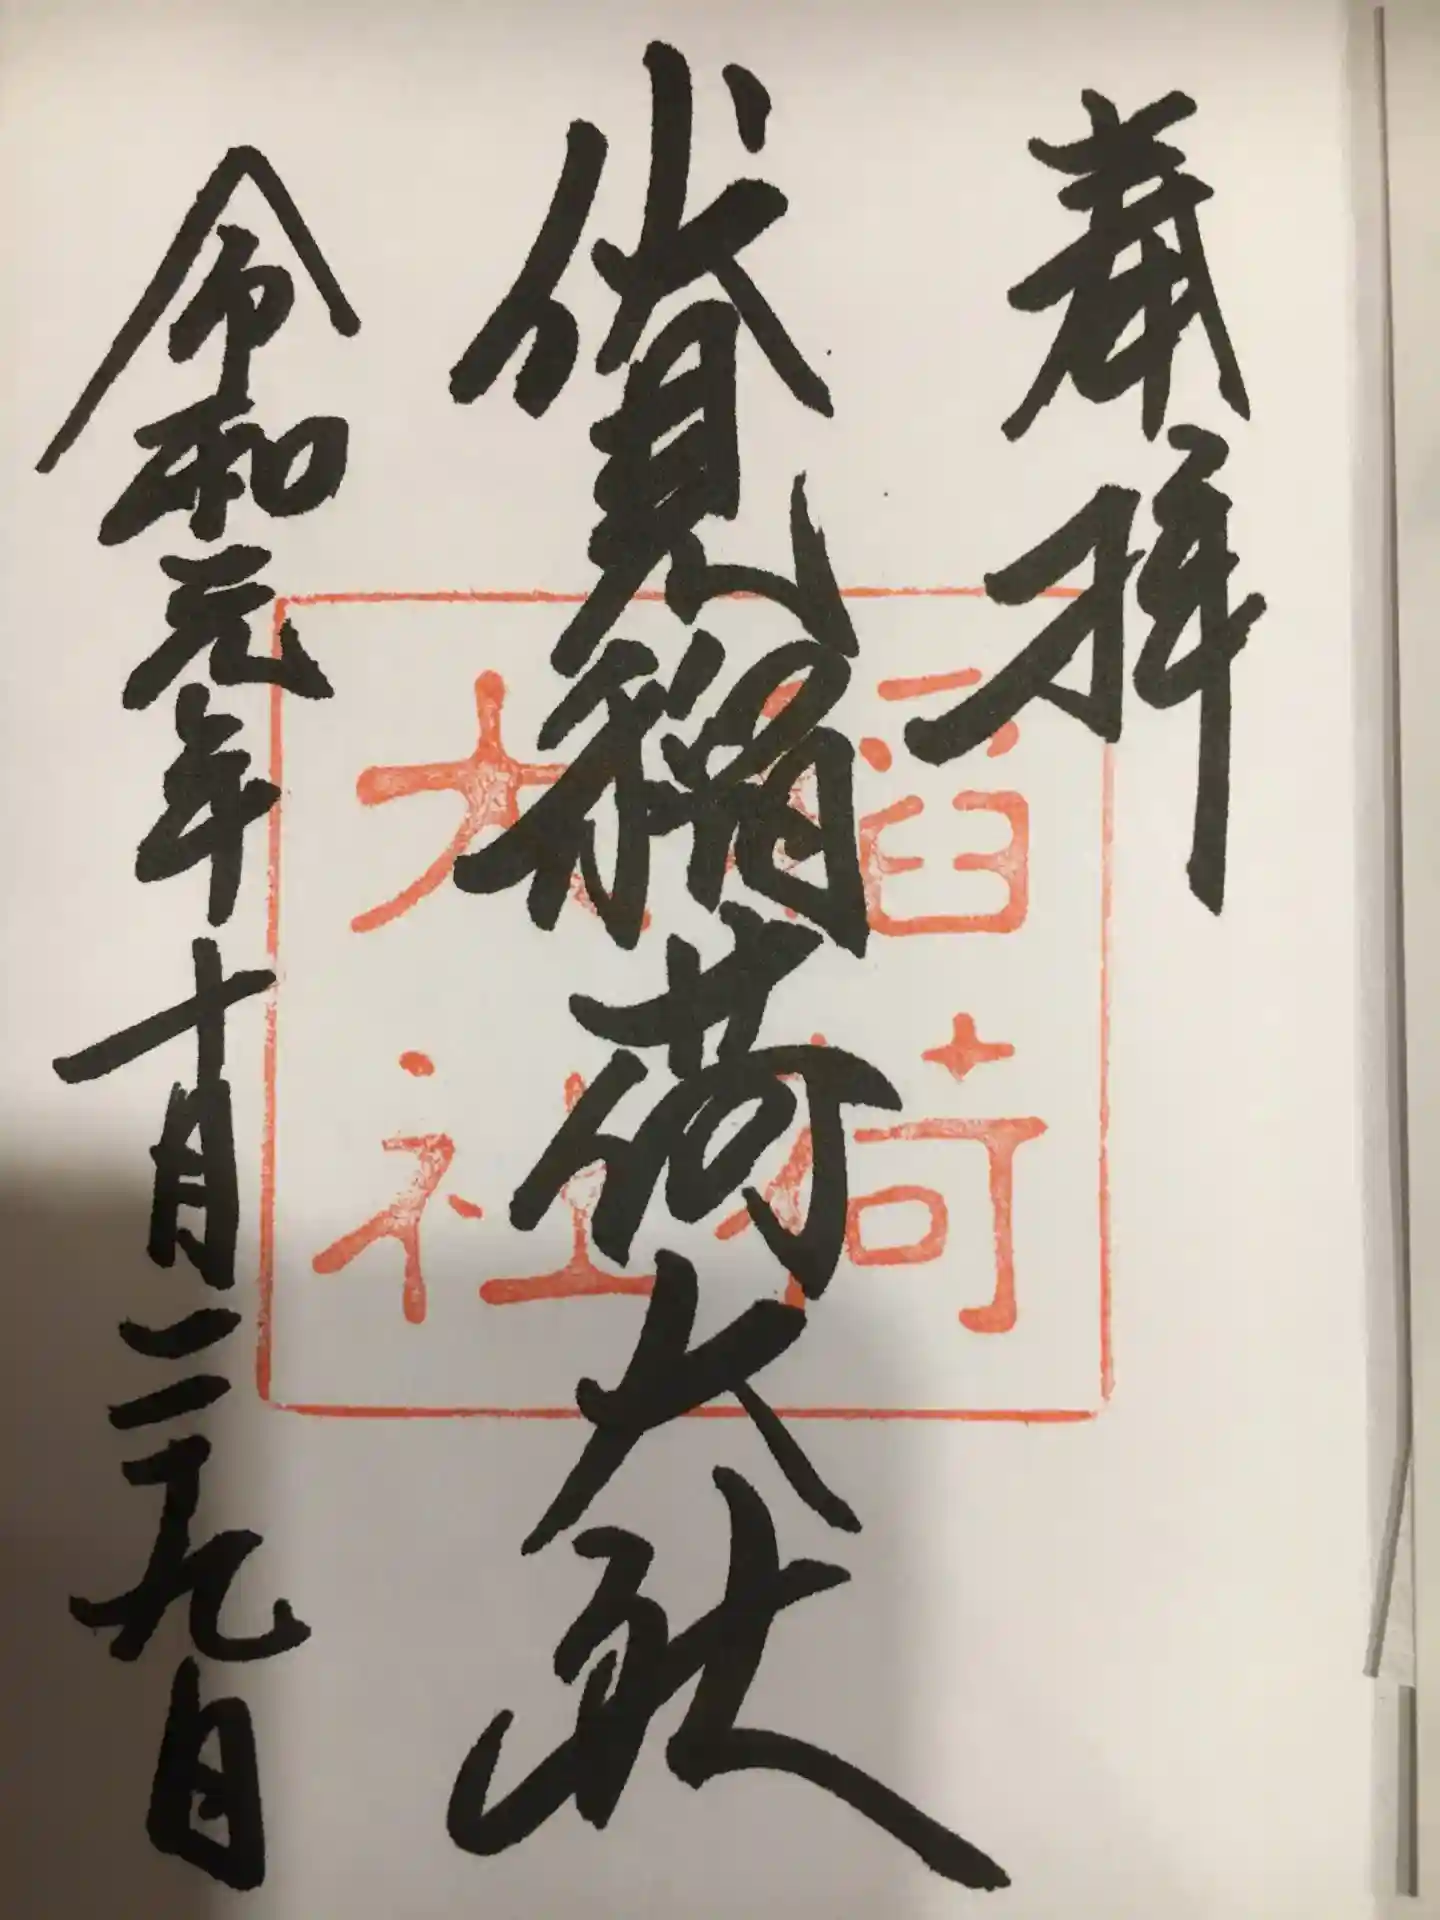 奉拝
伏見稲荷大社
令和元年十月二十九日
稲荷
大社